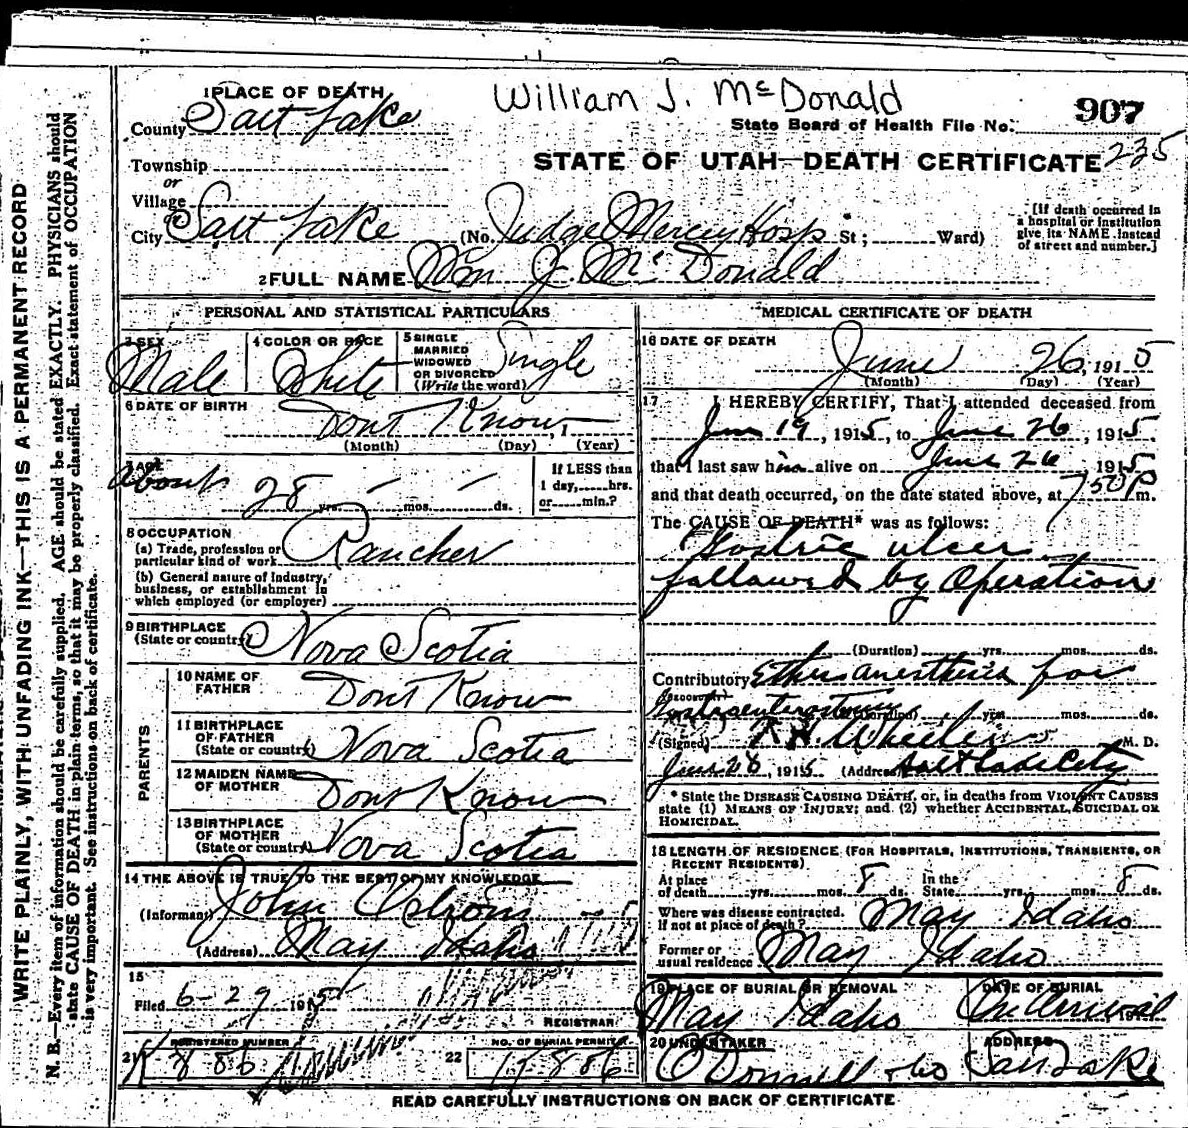 William J. McDonald
907
State Board of Health File No.
STATE OF UTAH—DEATH CERTIFICATE 235
1 PLACE OF DEATH
County Salt Lake
Township
or
Village
or
City Salt Lake (No. Judge Mercy Hosp St; Ward)
[If death occurred in
a hospital or institution
give its NAME instead
of street and number.]
2 FULL NAME Wm J McDonald
PERSONAL AND STATISTICAL PARTICULARS
3 SEX
Male
4 COLOR OR RACE
White
5 SINGLE
MARRIED
WIDOWED
OR DIVORCED
(Write the word)
Single
6 DATE OF BIRTH
Dont Know, 1
(Month) (Day) (Year)
7 AGE
about 28 yrs. mos. ds.
If LESS than
1 day, hrs.
or min.?
8 OCCUPATION
(a) Trade, profession or
particular kind of work Rancher
(b) General nature of Industry,
business, or establishment in
which employed (or employer)
9 BIRTHPLACE
(State or country) Nova Scotia
PARENTS
10 NAME OF
FATHER Dont Know
11 BIRTHPLACE
OF FATHER
(State or country) Nova Scotia
12 MAIDEN NAME
OF MOTHER Dont Know
13 BIRTHPLACE
OF MOTHER
(State or country) Nova Scotia
14 THE ABOVE IS TRUE TO THE BEST OF MY KNOWLEDGE
(Informant) John
(Address) May Idaho
15
Filed 6-29 1915
REGISTRAR
21 REGISTERED NUMBER
K 886
22 NO. OF BURIAL PERMIT
K 886
MEDICAL CERTIFICATE OF DEATH
16 DATE OF DEATH
June 26, 1915
(Month) (Day) (Year)
17 I HEREBY CERTIFY, That I attended deceased from
Jun 19, 1915, to June 26, 1915.
that I last saw him alive on June 26 1915
and that death occurred, on the date stated above, at 7 50 P m.
The CAUSE OF DEATH* was as follows:
Gastric ulcer
followed by Operation
(Duration) yrs. mos. ds.
Contributory Ether anesthesia for
Gastroenterostomy
(Duration) yrs. mos. ds.
(Signed) M. D.
June 28, 1915 (Address) Salt Lake City
* State the DISEASE CAUSING DEATH, or, in deaths from VIOLENT CAUSES
state (1) MEANS OF INJURY; and (2) whether ACCIDENTAL, SUICIDAL OR
HOMICIDAL.
18 LENGTH OF RESIDENCE (FOR HOSPITALS, INSTITUTIONS, TRANSIENTS, OR
RECENT RESIDENTS)
At place
of death yrs. mos. 8 ds.
In the
State yrs. mos. 8 ds.
Where was disease contracted.
If not at place of death? May Idaho
Former or
usual residence May Idaho
19 PLACE OF BURIAL OR REMOVAL
May Idaho
DATE OF BURIAL
On Arrival 191
20 UNDERTAKER
O'Donnell & Co
ADDRESS
Salt Lake
READ CAREFULLY INSTRUCTIONS ON BACK OF CERTIFICATE
WRITE PLAINLY, WITH UNFADING INK—THIS IS A PERMANENT RECORD
N. B.—Every item of information should be carefully supplied. AGE should be stated EXACTLY. PHYSICIANS should
state CAUSE OF DEATH in plain terms, so that it may be properly classified. Exact statement of OCCUPATION
is very important. See instructions on back of certificate.